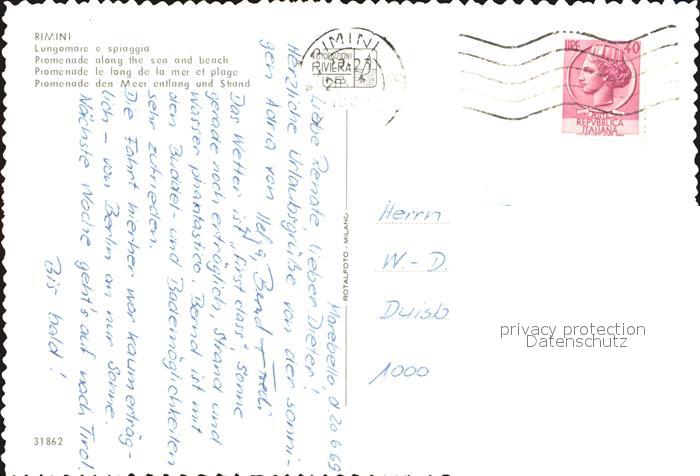 RIMINI
Lungomare e spiaggia
Promenade along the sea and beach
Promenade le long de la mer et plage
Promenade den Meer entlang und Strand
RIMINI
RIVIERA
LIRE 40
POSTE
REPVBBLICA
ITALIANA
Morebello, d 20 6 69
Liebe Renate, lieber Dieter!
Herzliche Urlaubsgrüße von der sonni-
gen Adria von Helga Bernd +
Das Wetter ist „first class", Sonne
gerade noch erträglich, Strand und
Wasser phantastico. Bernd ist mit
den Buddel- und Bademöglichkeiten
sehr zufrieden.
Die Fahrt hierher war kaum erträg-
lich - von Berlin an nur Sonne.
Nächste Woche geht's auf nach Tirol
Bis bald!
ROTALFOTO - MILANO
Herrn
W. - D.
Duisb
1000
privacy protection
Datenschutz
31862